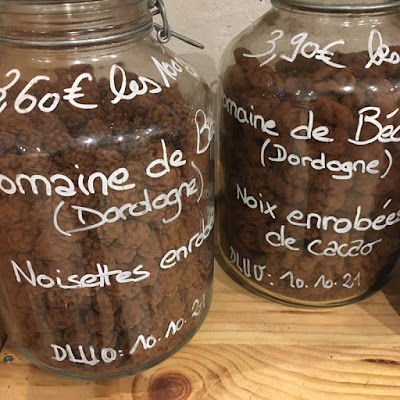 3,60€ les 100g
Domaine de
(Dordogne)
Noisettes enrobé
DLUO: 10.10.21
3,90€ les
omaine de Bé
(Dordogne)
Noix enrobées
de cacao
DLUO: 10.10.21